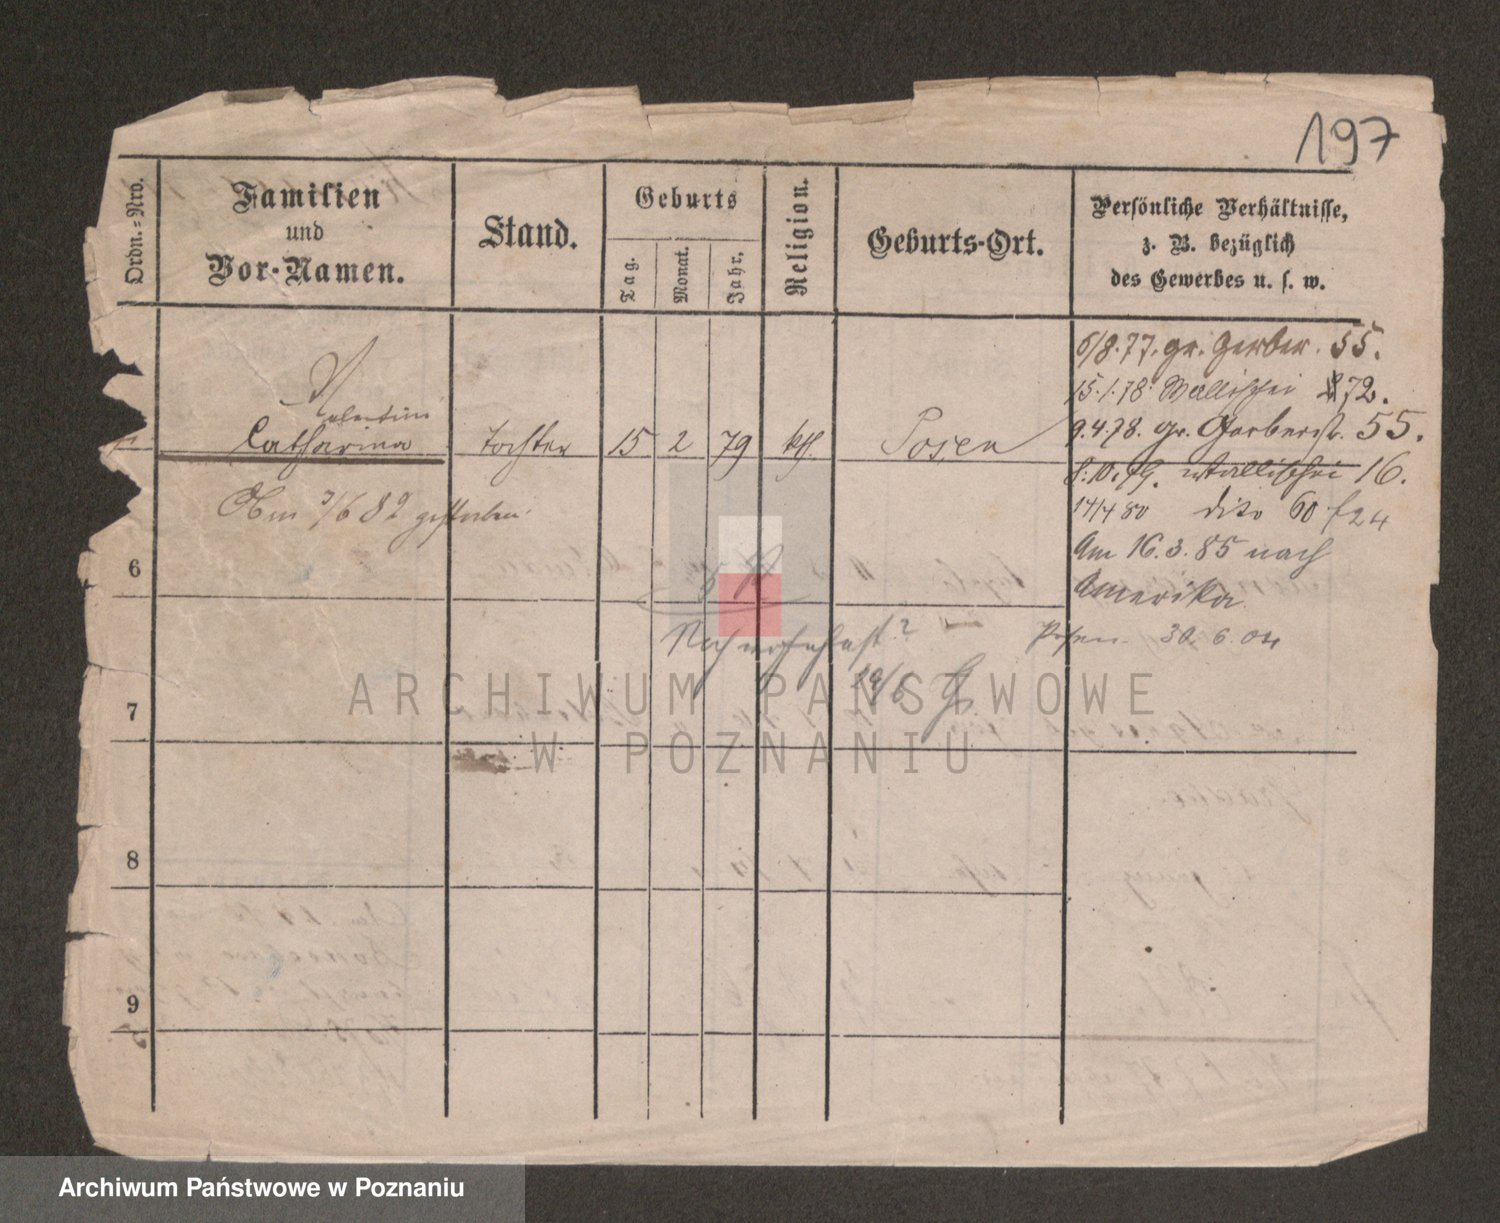 197
Ordn.-Nro.
Familien
und
Vor-Namen.
Stand.
Geburts
Tag.
Monat.
Jahr.
Religion.
Geburts-Ort.
Persönliche Verhältnisse,
z. B. bezüglich
des Gewerbes u. s. w.
6/8.77. gr. Gerber. 55.
15.1.78. Wallischei 72.
9.4.78. gr. Gerberst. 55.
8.10.79. Wallischei 16.
14/4 80 dito 60 f 24
Am 16.3.85 nach
Amerika
Posen 30.6.04
Valentin
Catharina Tochter 15 2 79 kth. Posen
Am 3/6 82 gestorben.
6
Noch wohnhaft?
19/6
7
8
9
ARCHIWUM PAŃSTWOWE
W POZNANIU
Archiwum Państwowe w Poznaniu